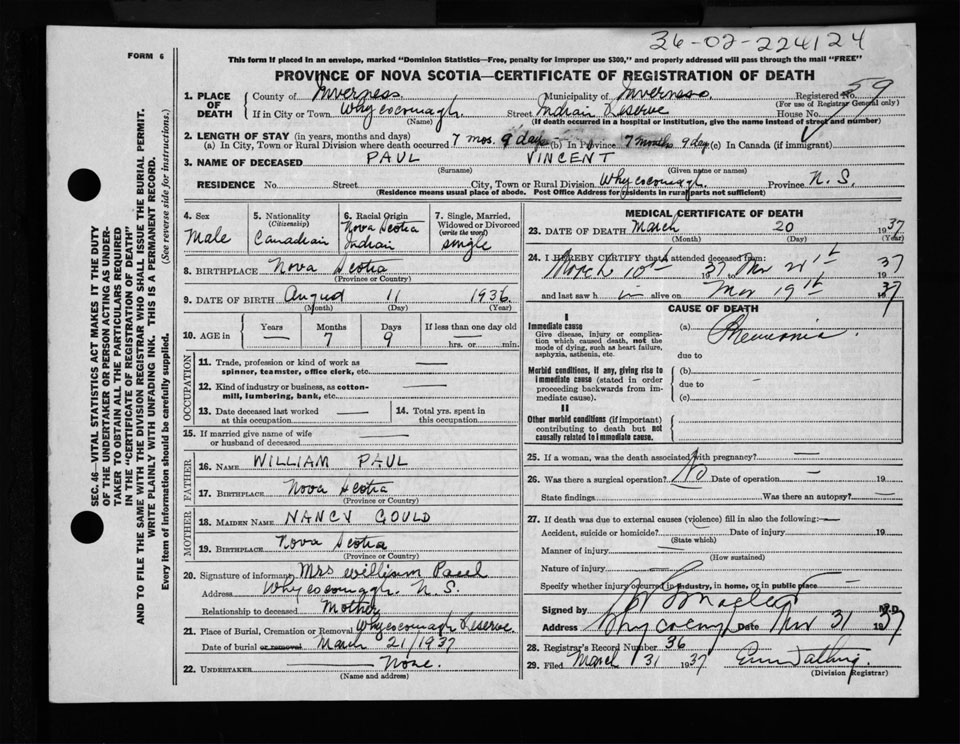 36-02-224124
FORM 6
This form if placed in an envelope, marked "Dominion Statistics—Free, penalty for improper use $300," and properly addressed will pass through the mail "FREE"
PROVINCE OF NOVA SCOTIA—CERTIFICATE OF REGISTRATION OF DEATH
1. PLACE OF DEATH County of Inverness Municipality of Inverness. Registered No. 59
(For use of Registrar General only)
If in City or Town Whycocomagh. (Name) Street Indian Reserve House No.
(If death occurred in a hospital or institution, give the name instead of street and number)
2. LENGTH OF STAY (in years, months and days)
(a) In City, Town or Rural Division where death occurred 7 mos. 9 days (b) In Province 7 months 9 days (c) In Canada (if immigrant)
3. NAME OF DECEASED PAUL VINCENT
(Surname) (Given name or names)
RESIDENCE No. Street City, Town or Rural Division Whycocomagh. Province N. S.
(Residence means usual place of abode. Post Office Address for residents in rural parts not sufficient)
4. Sex Male
5. Nationality (Citizenship) Canadian
6. Racial Origin Nova Scotia Indian
7. Single, Married, Widowed or Divorced (write the word) single
8. BIRTHPLACE Nova Scotia
(Province or Country)
9. DATE OF BIRTH August 11 1936
(Month) (Day) (Year)
10. AGE in Years — Months 7 Days 9 If less than one day old hrs. or min.
OCCUPATION
11. Trade, profession or kind of work as spinner, teamster, office clerk, etc. —
12. Kind of industry or business, as cotton-mill, lumbering, bank, etc. —
13. Date deceased last worked at this occupation —
14. Total yrs. spent in this occupation —
15. If married give name of wife or husband of deceased —
FATHER
16. NAME WILLIAM PAUL
17. BIRTHPLACE Nova Scotia
(Province or Country)
MOTHER
18. MAIDEN NAME NANCY GOULD
19. BIRTHPLACE Nova Scotia
(Province or Country)
20. Signature of informant Mrs William Paul
Address Whycocomagh. N. S.
Relationship to deceased Mother
21. Place of Burial, Cremation or Removal Whycocomagh Reserve.
Date of burial or removal March 21/1937
22. UNDERTAKER None.
(Name and address)
MEDICAL CERTIFICATE OF DEATH
23. DATE OF DEATH March 20 1937
(Month) (Day) (Year)
24. I HEREBY CERTIFY that I attended deceased from:
March 10th 1937 Mar 1937
and last saw h im alive on Mar 19th 1937
CAUSE OF DEATH
I
Immediate cause
Give disease, injury or complication which caused death, not the mode of dying, such as heart failure, asphyxia, asthenia, etc.
(a) Pneumonia.
due to
Morbid conditions, if any, giving rise to immediate cause (stated in order proceeding backwards from immediate cause).
(b)
due to
(c)
II
Other morbid conditions (if important) contributing to death but not causally related to immediate cause.
25. If a woman, was the death associated with pregnancy? —
26. Was there a surgical operation? No Date of operation 19
State findings Was there an autopsy? —
27. If death was due to external causes (violence) fill in also the following:—
Accident, suicide or homicide? Date of injury 19
(State which)
Manner of injury
(How sustained)
Nature of injury
Specify whether injury occurred in industry, in home, or in public place —
Signed by M.D.
Address Date Mar 31 1937
28. Registrar's Record Number 36
29. Filed March 31 1937
(Division Registrar)
SEC. 46—VITAL STATISTICS ACT MAKES IT THE DUTY
OF THE UNDERTAKER OR PERSON ACTING AS UNDER-
TAKER TO OBTAIN ALL THE PARTICULARS REQUIRED
IN THE "CERTIFICATE OF REGISTRATION OF DEATH"
AND TO FILE THE SAME WITH THE DIVISION REGISTRAR WHO SHALL ISSUE THE BURIAL PERMIT.
WRITE PLAINLY WITH UNFADING INK. THIS IS A PERMANENT RECORD.
Every item of information should be carefully supplied. (See reverse side for instructions.)